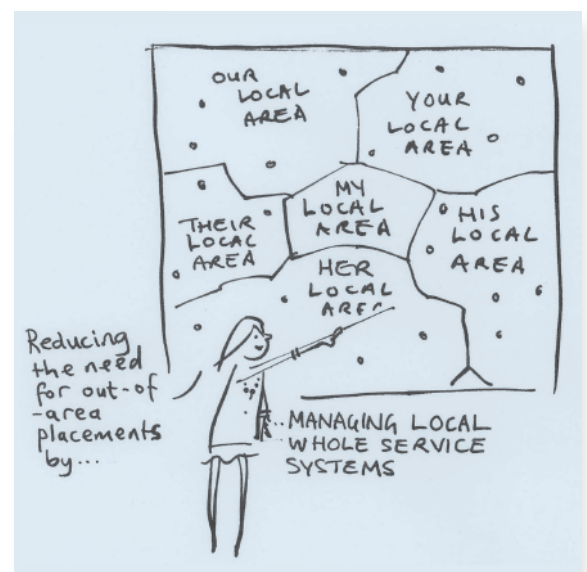 OUR
LOCAL
AREA
YOUR
LOCAL
AREA
THEIR
LOCAL
AREA
MY
LOCAL
AREA
HIS
LOCAL
AREA
HER
LOCAL
AREA
Reducing
the need
for out-of
-area
placements
by...
...MANAGING LOCAL
WHOLE SERVICE
SYSTEMS